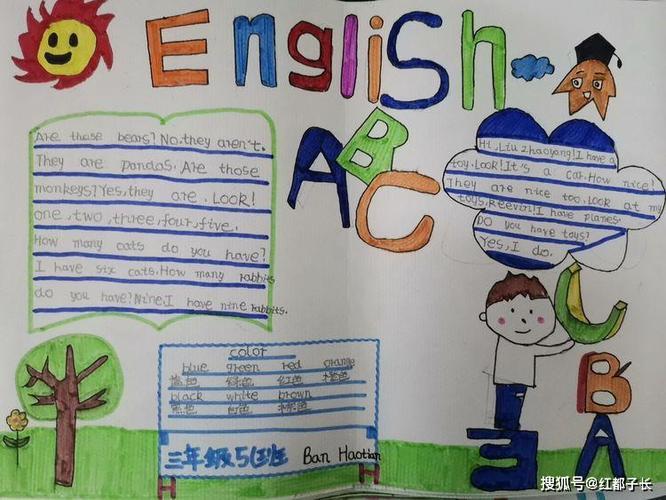 English
ABC
Are those bears? No, they aren't.
They are pandas. Are those
monkeys? Yes, they are. Look!
one, two, three, four, five.
How many cats do you have?
I have six cats. How many rabbits
do you have? Nine. I have nine rabbits.
Hi, Liu zhaoyang! I have a
toy. Look! It's a car. How nice!
They are nice too. Look at my
toys, I have planes.
Do you have toys?
Yes, I do.
color
blue green red orange
绿色 红色 橙色
black white brown
黑色 白色 棕色
三年级5班 Ban Haotian
C
B
A
搜狐号@红都子长